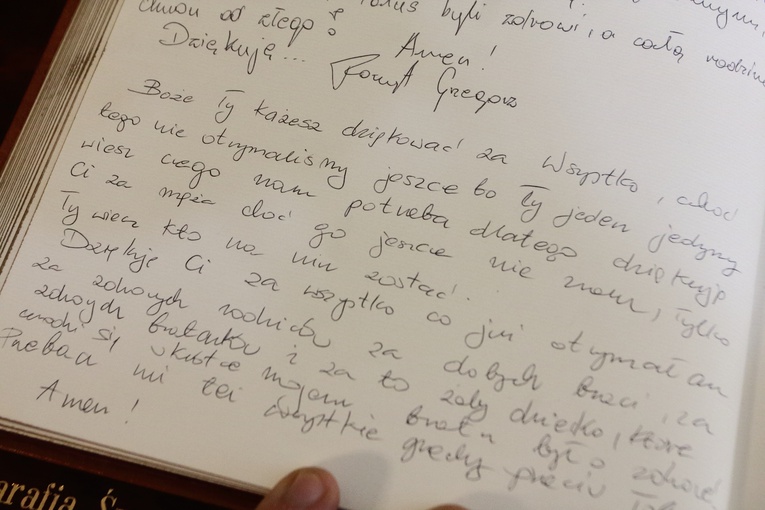 byli zdrowi, a całą rodzinę
chroń od złego!
Dziękuję... Amen!
Grzegorz
Boże Ty każesz dziękować za wszystko, choć
tego nie otrzymaliśmy jeszcze bo Ty jeden jedyny
wiesz czego nam potrzeba dlatego dziękuję
Ci za męża choć go jeszcze nie znam, tylko
Ty wiesz kto ma nim zostać.
Dziękuję Ci za wszystko co już otrzymałam
za zdrowych rodziców za dobrych braci, za
zdrowych bratanków i za to żeby dziecko, które
urodzi się wkrótce mojemu bratu było zdrowe.
Przebacz mi też wszystkie grzechy przeciw
Amen!
arafia